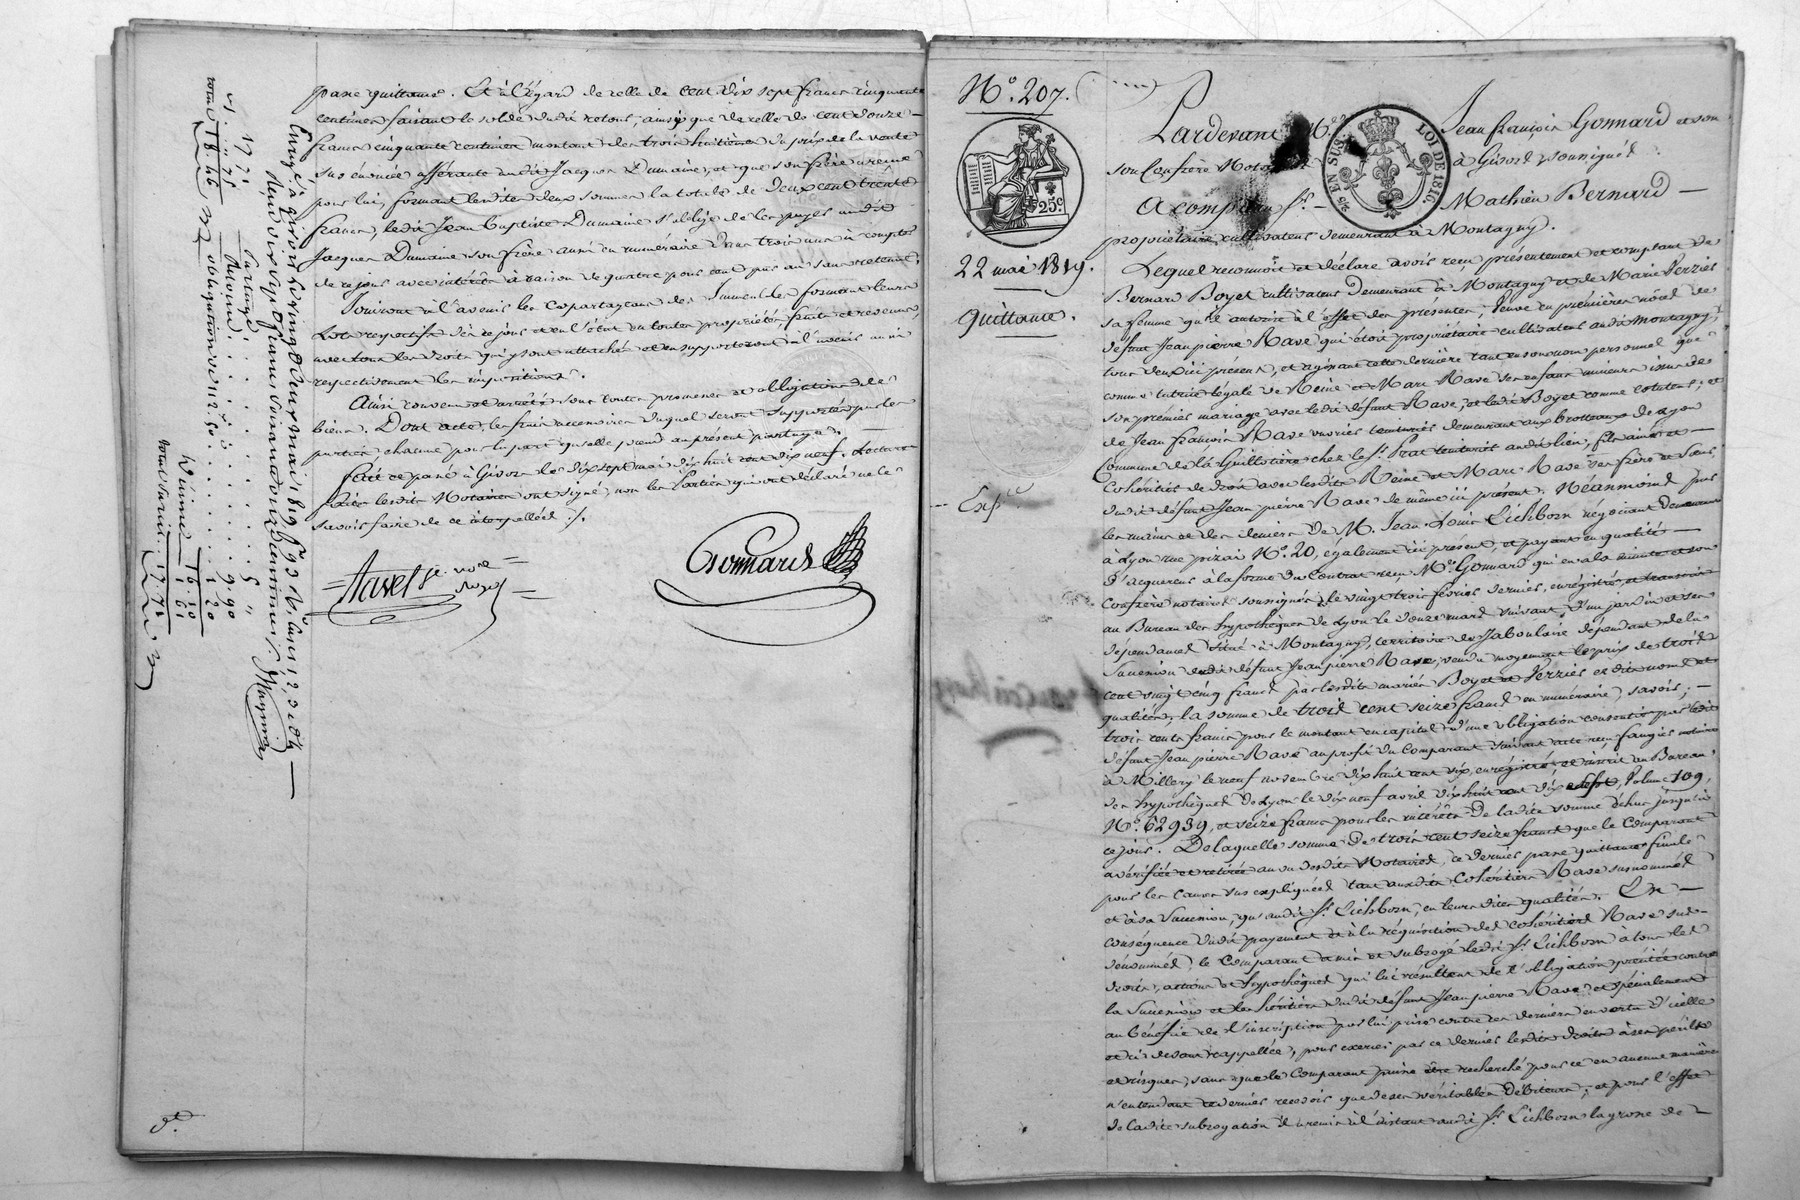 passe quittance. Et à l'égard de celle de cent dix sept francs cinquante
centimes faisant le solde dudit retour, ainsi que de celle de cent douze
francs cinquante centimes montant des trois huitièmes du prix de la vente
sus énoncée afférante audit Jacques Dumaine, et que son frère a reçue
pour lui, formant lesdites deux sommes la totale de deux cent trente
francs, ledit Jean baptiste Dumaine s'oblige de les payer audit
Jacques Dumaine son frère aussi en numéraire dans trois ans à compter
de ce jour avec intérêts à raison de quatre pour cent par an sans retenue.
Jouiront à l'avenir les copartageans des Immeubles formant leurs
Lots respectifs dès ce jour et en l'état en toutes propriétés, fruits et revenus,
avec tous les droits qui y sont attachés et en supporteront à l'avenir aussi
respectivement les impositions.
Ainsi convenu et arrêté sous toutes promesses et obligations de
biens. Dont acte, les frais accessoires duquel seront supportés par les
parties chacune pour la part qu'elle prend au présent partage.
fait et passé à Givors le dix sept mai dix huit cent dix neuf. Lecture
faite lesdits Notaires ont signé, non les parties qui ont déclaré ne le
savoir faire de ce interpellées ./.
Gonnard
Enreg. à Givors le vingt deux mai 1819 f. 93
Reçu dix sept francs soixante onze centimes
Partage . . . . 5 "
obligation de 112.50
Décime 1.61
total 17.71
N.° 207.
25c
LOI DE 1816.
EN SUS
22 mai 1819.
quittance.
Exp.ée
Pardevant M.e Jean françois Gonnard et son
son Confrère Notaires à Givors soussignés
A comparu Sr. Mathieu Bernard
propriétaire cultivateur demeurant à Montagny.
Lequel reconnoit et déclare avoir reçu présentement et comptant de
Bernard Boyet cultivateur demeurant à Montagny et de Marie Verrier
sa femme qu'il autorise à l'effet des présentes, veuve en premières nôces de
défunt Jean pierre Rave qui étoit propriétaire cultivateur audit Montagny,
tous deux ici présens, et agissant cette dernière tant en son nom personnel que
comme tutrice légale de Reine et Marc Rave ses enfans mineurs issus de
son premier mariage avec ledit défunt Rave, et ledit Boyet comme cotuteur; et
de Jean françois Rave ouvrier teinturier demeurant aux brotteaux de Lyon
Commune de la Guillotière chez le Sr. Prat teinturier audit lieu, fils ainé et
Cohéritier de droit avec lesdits Reine et Marc Rave ses frère et sœur
dudit défunt Jean pierre Rave de même ici présent. Néanmoins par
les mains et des deniers de M. Jean Louis Eichborn négociant demeurant
à Lyon rue pizai N.° 20, également ici présent, et payant en qualité
d'acquereur à la forme du contrat reçu M.e Gonnard qui en a la minute et son
Confrère notaires soussignés le vingt trois février dernier, enregistré, et transcrit
au Bureau des hypothèques de Lyon le douze mars suivant, d'un jardin et ses
dépendances situé à Montagny, territoire de Jaboulaie dépendant de la
succession dudit défunt Jean pierre Rave, vendu moyennant le prix de trois
cent vingt cinq francs par lesdits mariés Boyet et Verrier esdits noms et
qualités, la somme de trois cent seize francs en numéraire, savoir;
trois cents francs pour le montant en capital d'une obligation consentie par ledit
défunt Jean pierre Rave au profit du Comparant suivant acte reçu faugier notaire
à Millery le neuf novembre dix huit cent dix, enregistré et inscrit au Bureau
des hypothèques de Lyon le dix neuf avril dix huit cent dix sept, Volume 109,
N.° 62939, et seize francs pour les intérêts de ladite somme échus jusqu'à
ce jour. De laquelle somme de trois cent seize francs que le Comparant
a vérifiée et retirée au vu desdits Notaires, ce dernier passe quittance finale
pour les causes sus expliquées tant auxdits Cohéritiers Rave susnommés
et à sa succession, qu'audit Sr. Eichborn, en leurs dites qualités. En
conséquence dudit payement et à la réquisition des cohéritiers Rave sus-
dénommés, le Comparant a mis et subrogé ledit Sr. Eichborn à tous les
droits, actions et hypothèques qui lui résultent de l'obligation précitée contre
la succession et les héritiers dudit défunt Jean pierre Rave et spécialement
au bénéfice de l'inscription par lui prise contre ces derniers en vertu d'icelle
et ci devant rappellée, pour exercer par ce dernier lesdits droits à ses périls
et risques, sans que le Comparant puisse être recherché pour ce en aucune manière
n'entendant ce dernier recevoir que de ses véritables débiteurs; et pour l'effet
de ladite subrogation il a remis à l'instant audit Sr. Eichborn la grosse de